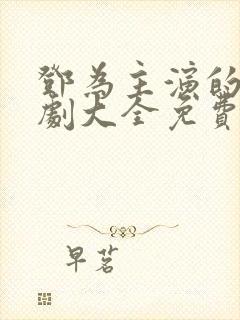 鄧為主演的
劇大全免費
早茗